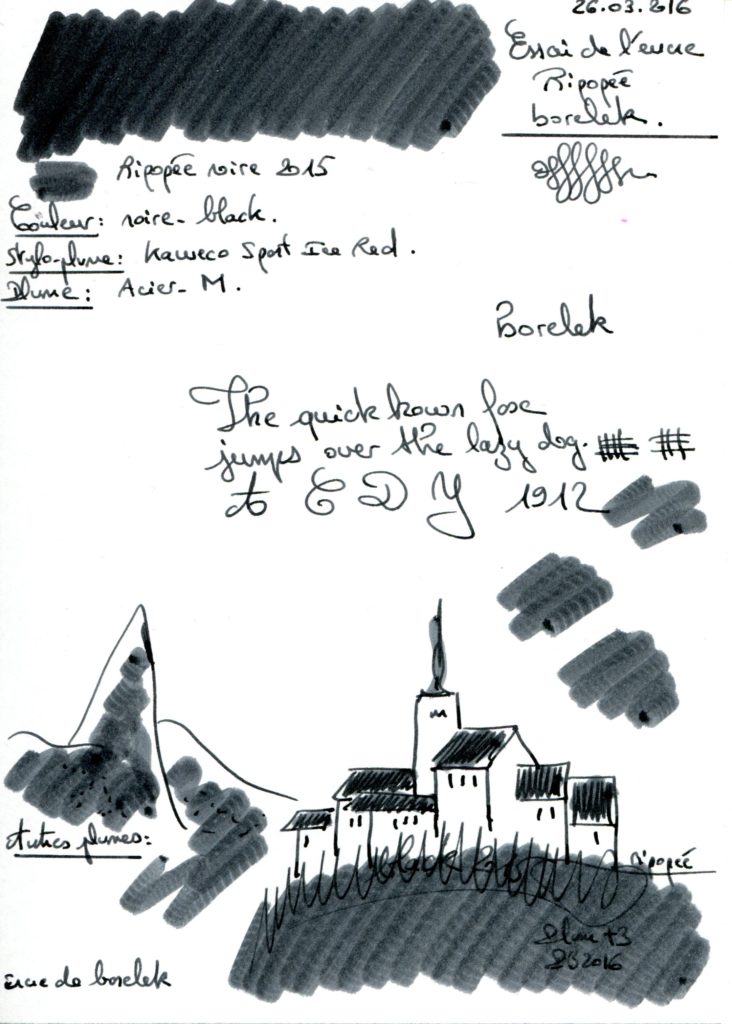 26.03.2016
Essai de l'encre
Ripopée
borelek.
Ripopée noire 2015
Couleur: noire- black.
Stylo-plume: Kaweco Sport Ice Red.
Plume: Acier- M.
Borelek
The quick brown fox
jumps over the lazy dog.
A E D Y 1912
Autres plumes:
Ripopée
2016
Encre de borelek